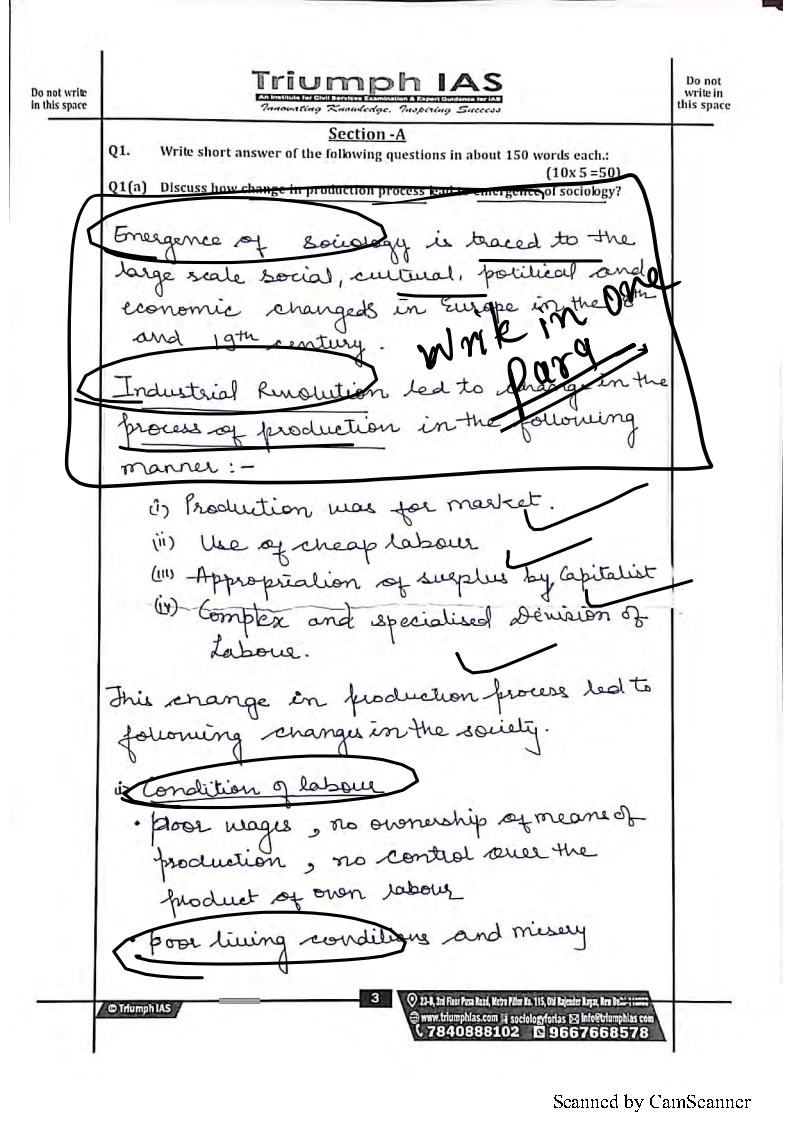 Do not write
in this space
Triumph IAS
An Institute for Civil Services Examination & Expert Guidance for IAS
Innovating Knowledge, Inspiring Success
Do not
write in
this space
Section -A
Q1. Write short answer of the following questions in about 150 words each.:
(10x 5 =50)
Q1(a) Discuss how change in production process lead to emergence of sociology?
Emergence of sociology is traced to the
large scale social, cultural, political and
economic changeds in Europe in the 18th
and 19th century.
Write in one
para
Industrial Revolution led to change in the
process of production in the following
manner :-
(i) Production was for market.
(ii) Use of cheap labour
(iii) Appropriation of surplus by Capitalist
(iv) Complex and specialised Division of
Labour.
This change in production process led to
following changes in the society.
i) Condition of labour
• Poor wages, no ownership of means of
production, no control over the
product of own labour
• Poor living conditions and misery
© Triumph IAS
3
23-B, 2nd Floor Pusa Road, Metro Pillar No. 115, Old Rajender Nagar, New Delhi-110060
www.triumphias.com sociologyforias info@triumphias.com
7840888102 9667668578
Scanned by CamScanner